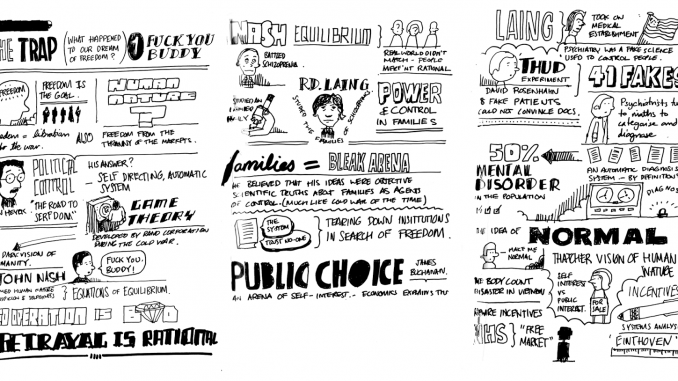 THE TRAP
WHAT HAPPENED
TO OUR DREAM
OF FREEDOM?
FUCK YOU
BUDDY
FREEDOM
FREEDOM IS
THE GOAL.
HUMAN
NATURE
= liberation
the war.
ALSO
FREEDOM FROM THE
TYRANNY OF THE MARKETS.
POLITICAL
CONTROL
HIS ANSWER?
- SELF DIRECTING, AUTOMATIC
SYSTEM
"THE ROAD TO
SERFDOM."
GAME
THEORY
DEVELOPED BY RAND CORPORATION
DURING THE COLD WAR.
DARK VISION OF
FUCK YOU
BUDDY!
JOHN NASH
EQUATIONS OF EQUILIBRIUM.
IS
BETRAYAL IS RATIONAL
NASH EQUILIBRIUM
BATTLED
SCHIZOPHRENIA.
REAL WORLD DIDN'T
MATCH - PEOPLE
WEREN'T RATIONAL
R.D. LAING
STUDIED THE FAMILIES OF
POWER
& CONTROL
IN FAMILIES
families = BLEAK ARENA
HE BELIEVED THAT HIS IDEAS WERE OBJECTIVE
SCIENTIFIC TRUTHS ABOUT FAMILIES AS AGENTS
OF CONTROL. (MUCH LIKE COLD WAR OF THE TIME)
THE
SYSTEM
TRUST NO-ONE
TEARING DOWN INSTITUTIONS
IN SEARCH OF FREEDOM.
PUBLIC CHOICE
JAMES
BUCHANAN.
AN ARENA OF SELF-INTEREST. - ECONOMICS EXPLAINS THIS
LAING
TOOK ON
MEDICAL
ESTABLISHMENT
PSYCHIATRY WAS A FAKE SCIENCE
USED TO CONTROL PEOPLE.
THUD
EXPERIMENT
DAVID ROSENHAN
8 FAKE PATIENTS
COULD NOT CONVINCE DOCS.
41 FAKES
Psychiatrists
to
categorise and
diagnose
50%
MENTAL
DISORDER
IN THE POPULATION
AN AUTOMATIC DIAGNOSIS
SYSTEM - BY DEFINITION
IDEA OF NORMAL
MAKE ME
NORMAL
THATCHER VISION OF HUMAN
NATURE
BODY COUNT
DISASTER IN VIETNAM
SELF
INTEREST
VS
PUBLIC
INTEREST.
FOR
SALE
INCENTIVES
INCENTIVES
NHS
"FREE
MARKET"
SYSTEMS ANALYSIS
'EINTHOVEN'